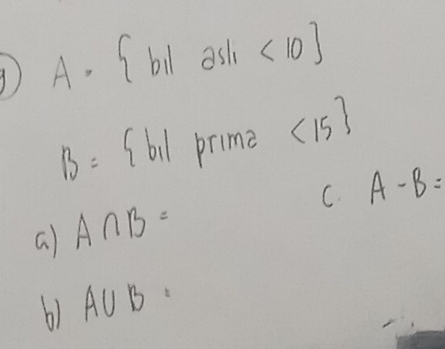 A = { bil asli < 10 }
B = { bil prima < 15 }
a) A ∩ B =
c. A - B =
b) A ∪ B =